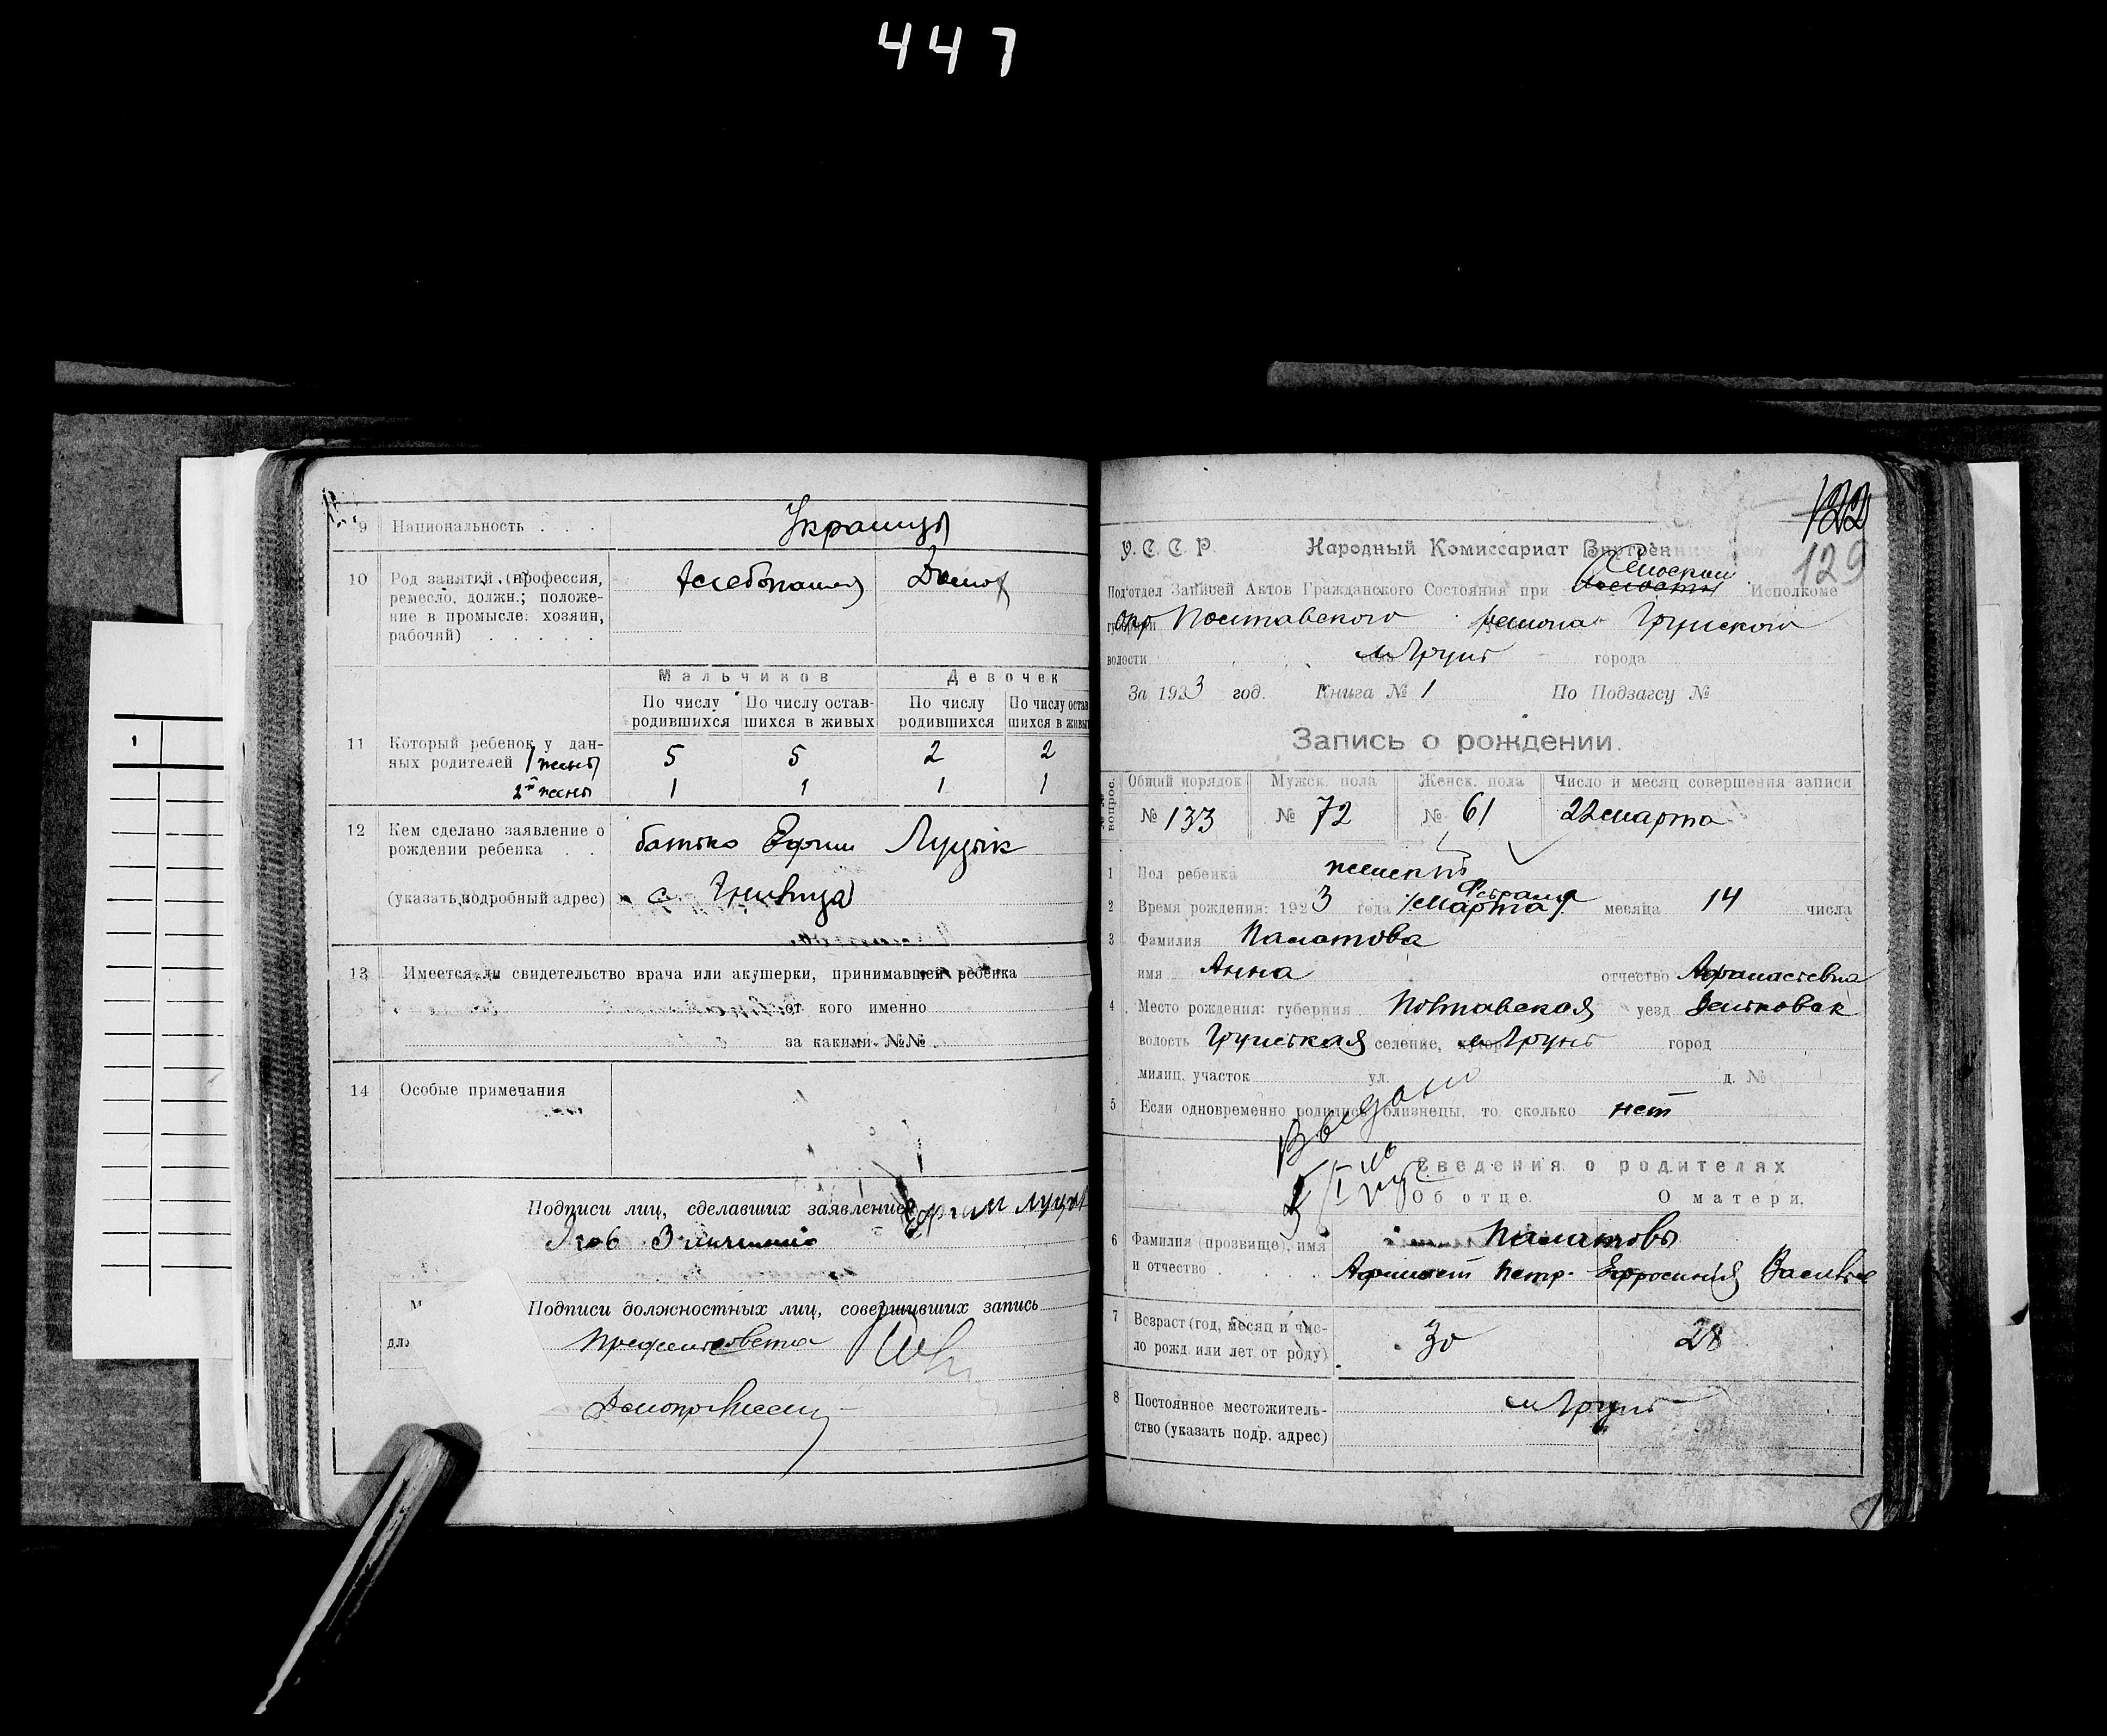 447
9 Национальность . . . Украинцы
10 Род занятий (профессия,
ремесло, должн.; положе-
ние в промысле: хозяин,
рабочий) . . . . .
Мальчиков Девочек
По числу родившихся По числу остав-шихся в живых По числу родившихся По числу остав шихся в живы
11 Который ребенок у дан-
ных родителей 1 жены 5 5 2 2
2й жены 1 1 1 1
12 Кем сделано заявление о
рождении ребенка . . батько Ефим Луцик
(указать подробный адрес) с.
13 Имеется ли свидетельство врача или акушерки, принимавшей ребенка
от кого именно
за какими №№
14 Особые примечания
Подписи лиц, сделавших заявление Ефим
Яков
Подписи должностных лиц, совершивших запись
122
129
У. С. С. Р. Народный Комиссариат Внутрен
Под'отдел Записей Актов Гражданского Состояния при Сельском Исполкоме
Окр Полтавского района Грунского
волости м Грунь города
За 1923 год. Книга № 1 По Подзагсу №
Запись о рождении.
№№ вопрос. Общий порядок Мужск. пола Женск. пола Число и месяц совершения записи
№ 133 № 72 № 61 22 марта
1 Пол ребенка женский
2 Время рождения: 1923 года Марта Февраля месяца 14 числа
3 Фамилия
имя Анна отчество Афанасьевна
4 Место рождения: губерния Полтавская уезд Зеньковск
волость Грунская селение, м Грунь город
милиц. участок ул. д. №
5 Если одновременно родились близнецы, то сколько нет
Выдано
Сведения о родителях
Об отце. О матери.
6 Фамилия (прозвище), имя
и отчество . . . . Петр. Ефросиния
7 Возраст (год, месяц и чис-
ло рожд. или лет от роду) 30 28
8 Постоянное местожитель-
ство (указать подр. адрес) м Грунь